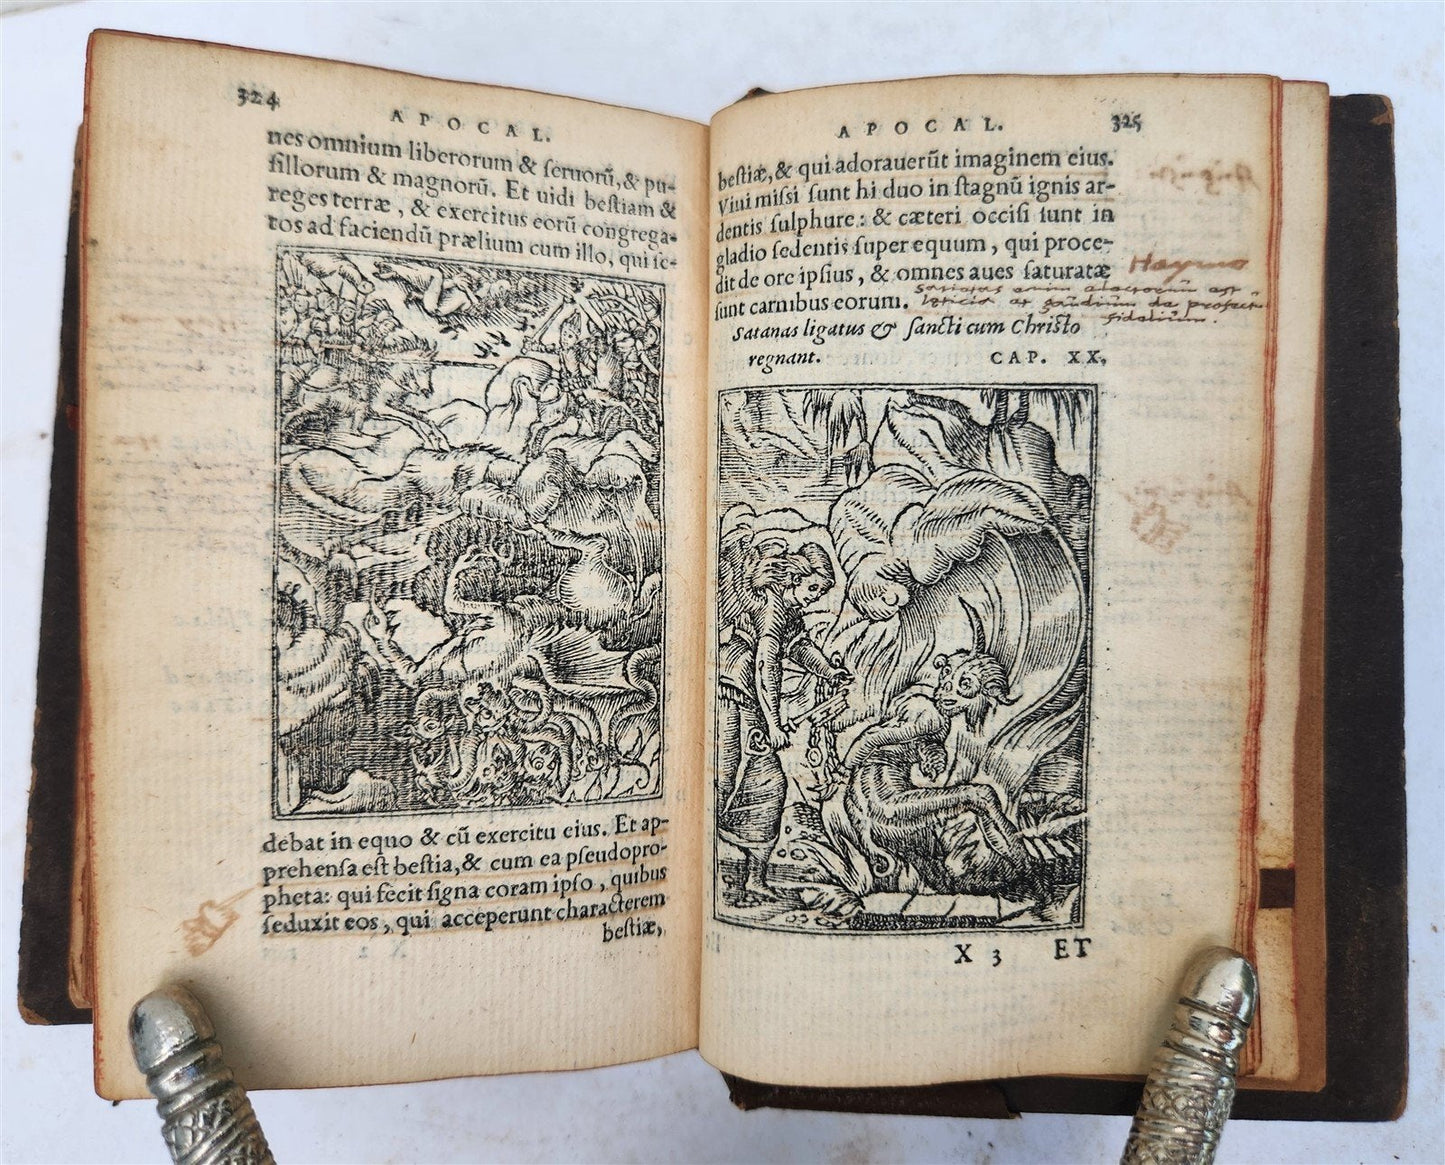 324
APOCAL.
nes omnium liberorum & ſeruorũ, & pu-
ſillorum & magnorũ. Et uidi beſtiam &
reges terræ, & exercitus eorũ congrega-
tos ad faciendũ prælium cum illo, qui ſe-
debat in equo & cũ exercitu eius. Et ap-
prehenſa eſt beſtia, & cum ea pſeudopro-
pheta: qui fecit ſigna coram ipſo, quibus
ſeduxit eos, qui acceperunt characterem
beſtiæ,
APOCAL.
325
beſtiæ, & qui adorauerũt imaginem eius.
Viui miſsi ſunt hi duo in ſtagnũ ignis ar-
dentis ſulphure: & cæteri occiſi ſunt in
gladio ſedentis ſuper equum, qui proce-
dit de ore ipſius, & omnes aues ſaturatæ
Haymo
ſunt carnibus eorum.
fidelium.
Satanas ligatus & ſancti cum Chriſto
regnant. CAP. XX.
X 3 ET